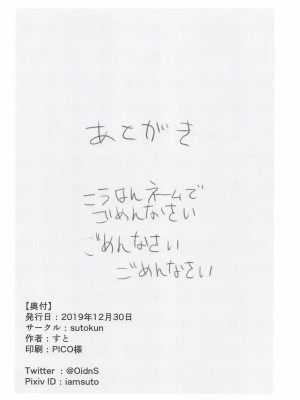 あとがき
こうはんネームで
ごめんなさい
ごめんなさい
ごめんなさい
【奥付】
発行日：2019年12月30日
サークル：sutokun
作者：すと
印刷：PICO様
Twitter ：@OidnS
Pixiv ID：iamsuto